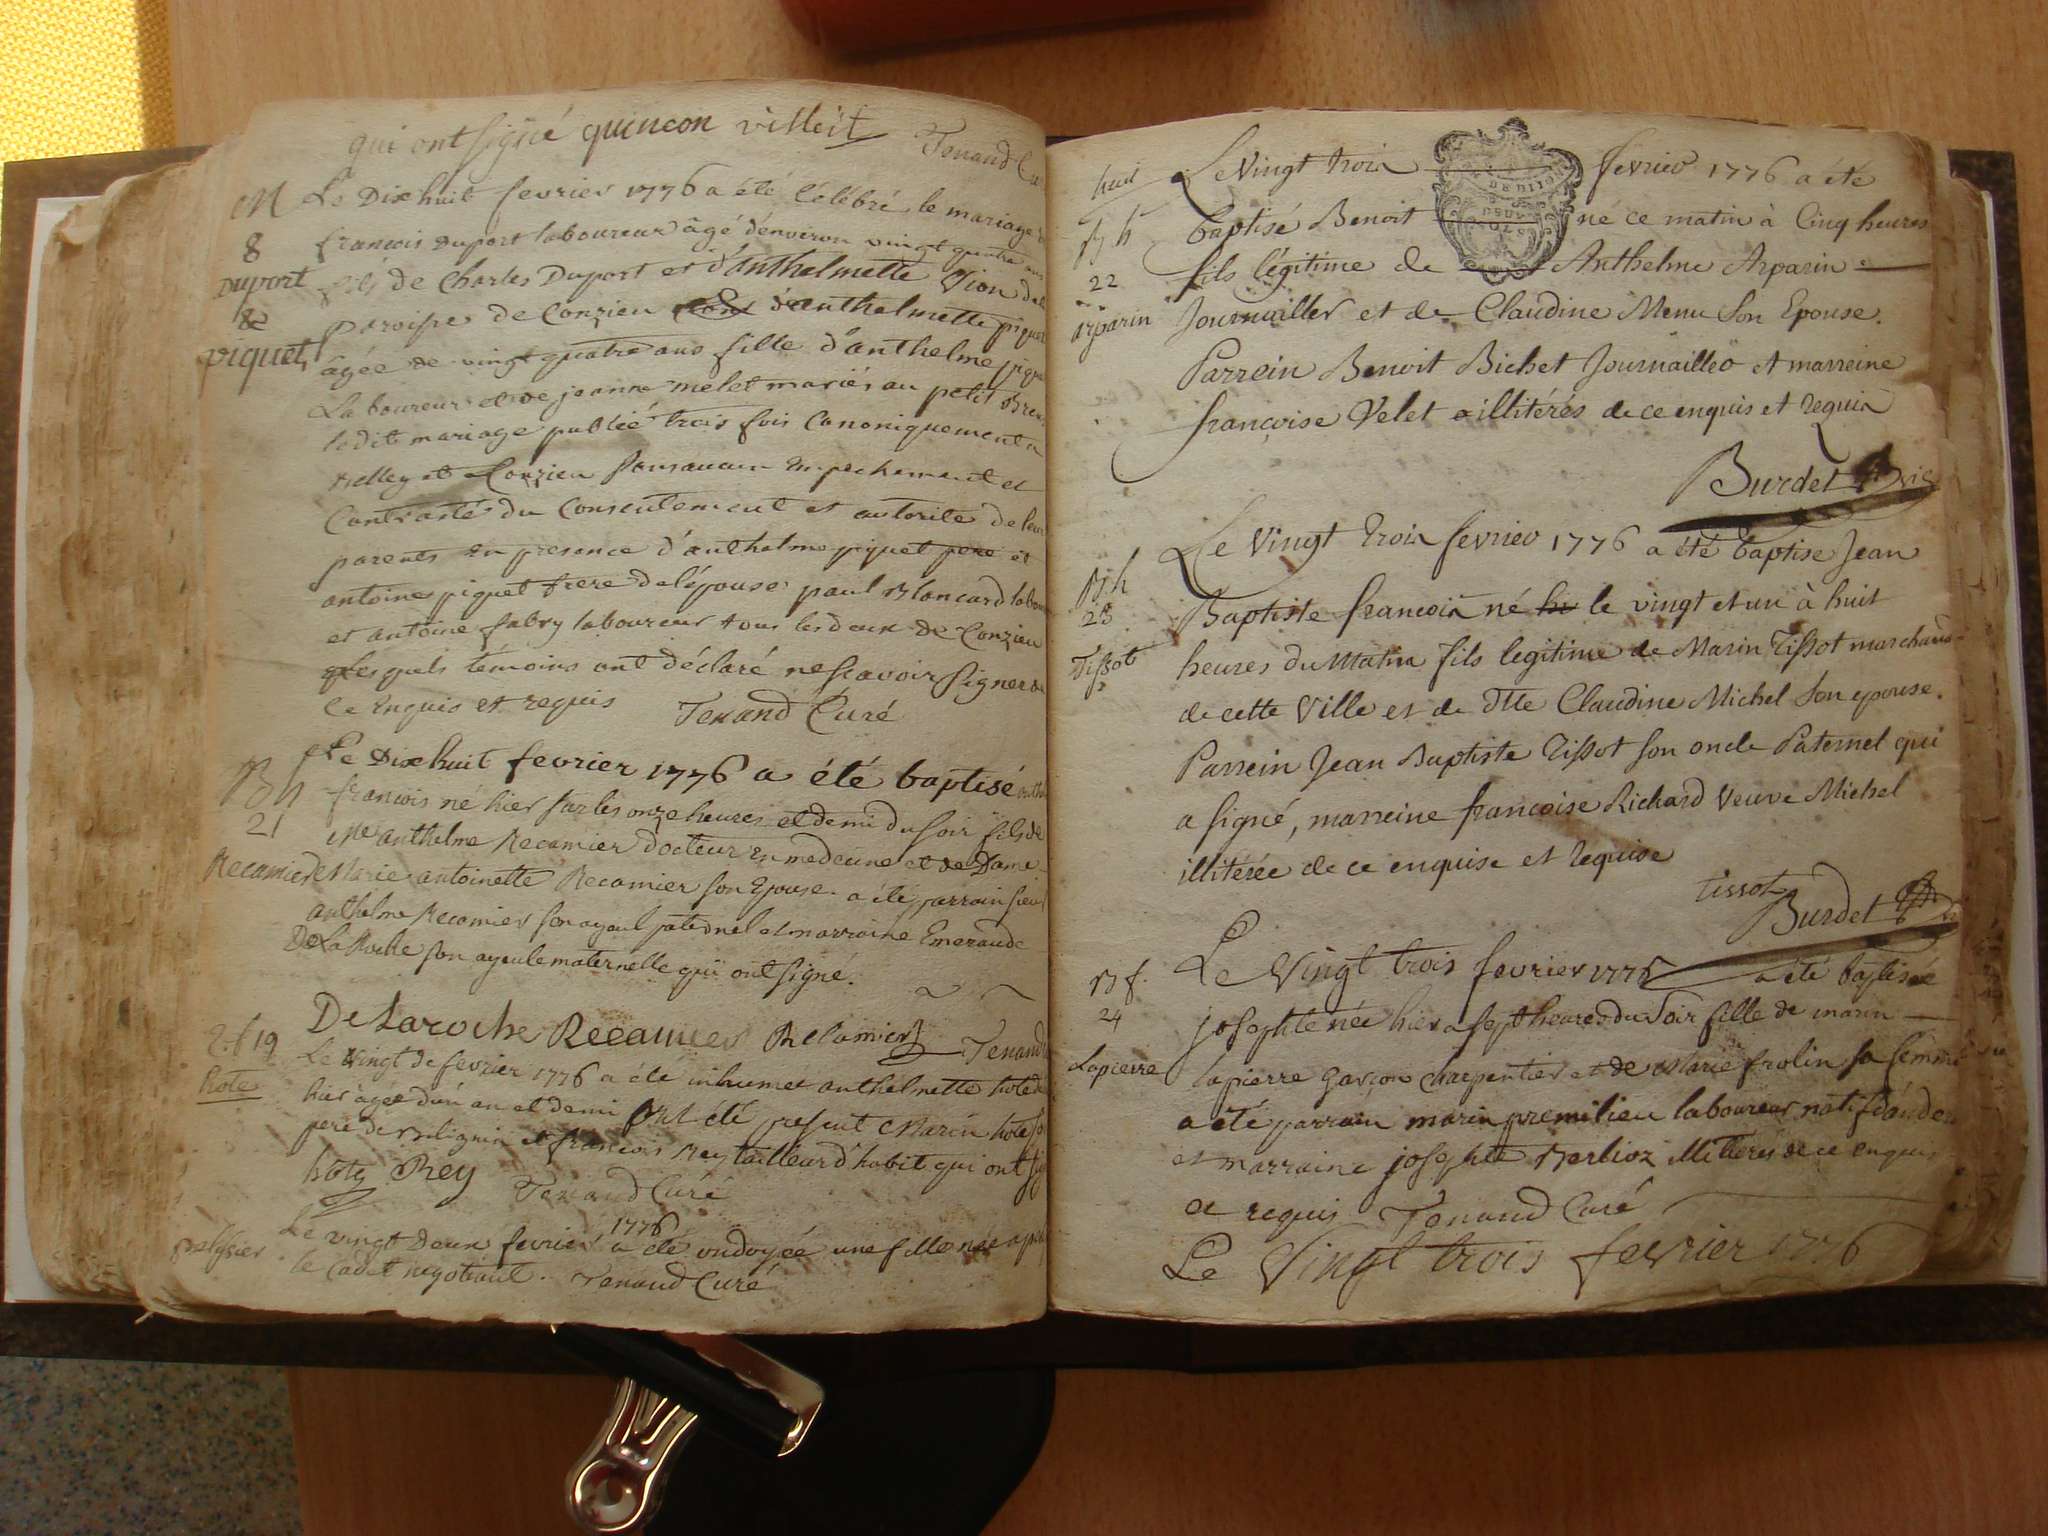 qui ont signé quincon villeit
Tenand Cu
M
8
Duport
&
piquet
Le Dix huit fevrier 1776 a été Célébré le mariage
francois duport laboureur âgé d'environ vingt quatre ans
fils de Charles Duport et d'anthelmette Vion de
paroisse de Conzieu d'anthelmette piquet
âgée de vingt quatre ans fille d'anthelme pique
Laboureur et de jeanne melet mariés au petit Bren
ledit mariage publié trois fois Canoniquement a
Belley et Conzieu sans aucun Empechement et
Contracté du Consentement et autorite de leur
parents En presence d'anthelme piquet pere et
antoine piquet frere de l'épouse paul Blancard labou
et antoine fabry laboureur tous les deux de Conzieu
lesquels témoins ont déclaré ne scavoir signer de
Ce Enquis et requis Tenand Curé
B h
21
Recamier
Le Dix huit fevrier 1776 a été baptisé anth
francois né hier sur les onze heures et demi du soir fils de
Me anthelme Recamier docteur En medecine et de Dame
Marie antoinette Recamier son Epouse. a été parrain sieur
anthelme Recamier son ayeul paternel et marraine Emeraude
De La Roche son ayeule maternelle qui ont signé.
De Laroche Recamier Recamier Tenand
S. f 19
hote
Le vingt de fevrier 1776 a été inhumet anthelmette hote
hier âgée d'un an et demi Ont été present Marin hote so
pere de Bilignin et francois Rey tailleur d'habit qui ont sig
hote Rey Tenand Curé
pelysier
Le vingt Deux fevrier 1776 a été ondoyée une fille née a p
le Cadet negotiant. Tenand Curé
huit
B h
22
arparin
Le Vingt trois fevrier 1776 a été
baptisé Benoit né ce matin à Cinq heures
fils légitime de Anthelme Arparin
Journaillier et de Claudine Menu Son Epouse.
Parrein Benoit Bichet Journaillier et marreine
françoise Velet illitérés de ce enquis et requis
Burdet Vic
B h
23
Tissot
Le Vingt trois fevrier 1776 a été baptise Jean
Baptiste francois né hi le vingt et un à huit
heures du Matin fils legitime de Marin Tissot marchand
de cette Ville et de Dlle Claudine Michel Son epouse.
Parrein Jean Baptiste Tissot son oncle Paternel qui
a signé, marreine françoise Richard Veuve Michel
illitérée de ce enquise et requise
tissot
Burdet Vic
B f.
24
Lapierre
Le Vingt trois fevrier 1776 a été baptisée
josephte née hier a sept heures du Soir fille de marin
lapierre Garcon charpentier et de Marie frolin sa femme
a été parrain marin premilieu laboureur natif d'ande
et marraine josephte Berlioz illittérés de ce enquis
et requis Tenand Curé
Le Vingt trois fevrier 1776